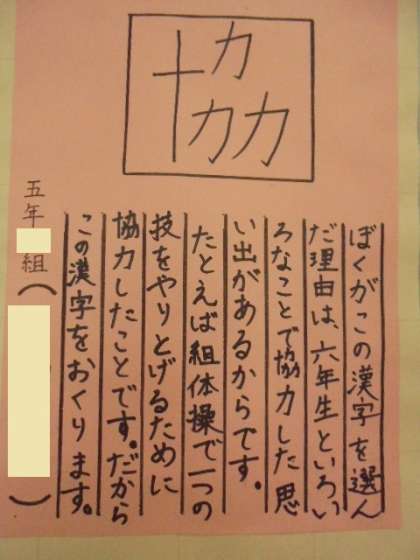 協
ぼくがこの漢字を選ん
だ理由は、六年生といろい
ろなことで協力した思
い出があるからです。
たとえば組体操で一つの
技をやりとげるために
協力したことです。だから
この漢字をおくります。
五年 組( )